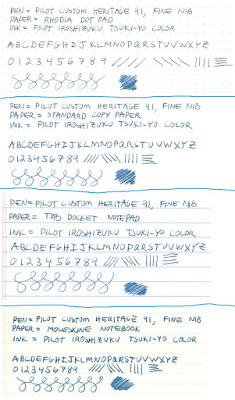 PEN = PILOT CUSTOM HERITAGE 91, FINE NIB
PAPER = RHODIA DOT PAD
INK = PILOT IROSHIZUKU TSUKI-YO COLOR
ABCDEFGHIJKLMNOPQRSTUVWXYZ
0123456789
PEN = PILOT CUSTOM HERITAGE 91, FINE NIB
PAPER = STANDARD COPY PAPER
INK = PILOT IROSHIZUKU TSUKI-YO COLOR
ABCDEFGHIJKLMNOPQRSTUVWXYZ
0123456789
PEN = PILOT CUSTOM HERITAGE 91, FINE NIB
PAPER = TOPS DOCKET NOTEPAD
INK = PILOT IROSHIZUKU TSUKI-YO COLOR
ABCDEFGHIJKLMNOPQRSTUVWXYZ
0123456789
PEN = PILOT CUSTOM HERITAGE 91, FINE NIB
PAPER = MOLESKINE NOTEBOOK
INK = PILOT IROSHIZUKU TSUKI-YO COLOR
ABCDEFGHIJKLMNOPQRSTUVWXYZ
0123456789